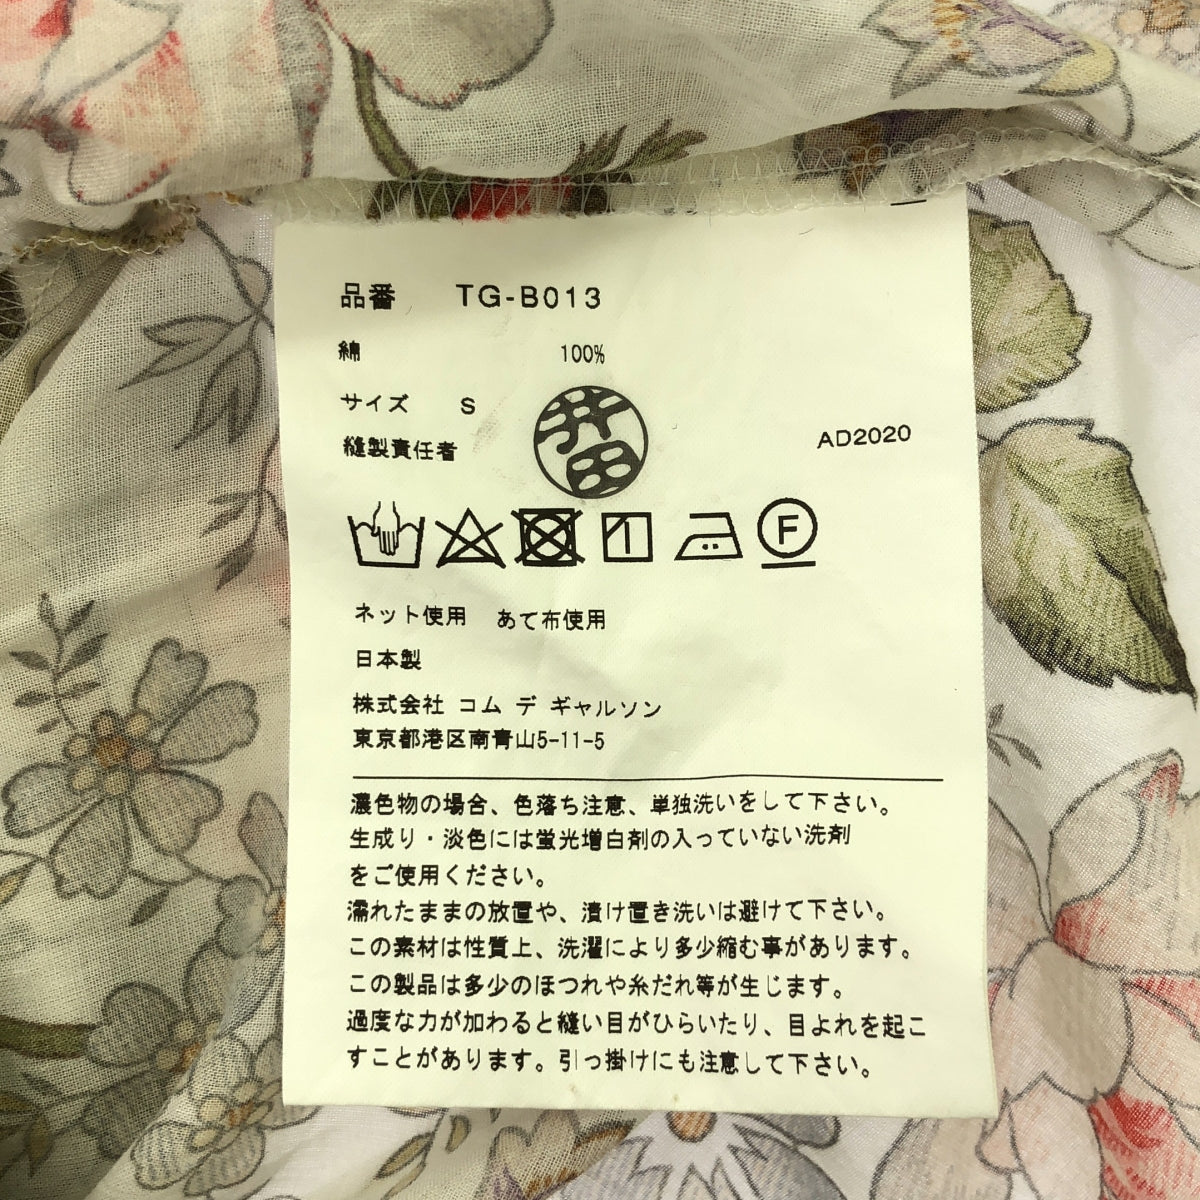 品番 TG-B013
綿 100%
サイズ S
縫製責任者 井田 AD2020
F
ネット使用 あて布使用
日本製
株式会社 コム デ ギャルソン
東京都港区南青山5-11-5
濃色物の場合、色落ち注意、単独洗いをして下さい。
生成り・淡色には蛍光増白剤の入っていない洗剤
をご使用ください。
濡れたままの放置や、漬け置き洗いは避けて下さい。
この素材は性質上、洗濯により多少縮む事があります。
この製品は多少のほつれや糸だれ等が生じます。
過度な力が加わると縫い目がひらいたり、目よれを起こ
すことがあります。引っ掛けにも注意して下さい。